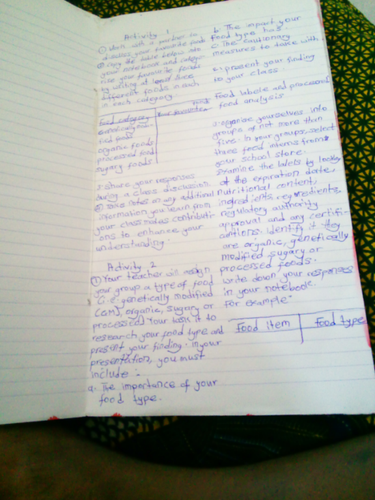 Activity 1
① Work with a partner to
discuss your favourite food
② Copy the table below into
your notebook and categor
ise your favourite foods
by writing at least three
different foods in each
in each category.
Food category
Genetically modi-
fied foods
organic foods
processed food
sugary foods
3 Share your responses
during a class discussion.
④ Take notes on any additional
information you learn from
your classmates contributi-
ons to enhance your
understanding.
Activity 2
① Your teacher will assign
your group a type of food
(i.e. genetically modified
(GM), organic, sugary or
processed). Your work is to
research your food type and
present your finding. In your
presentation, you must
include:-
a. The importance of your
food type.
b. The impact your
food type has
c. The cautionary
measures to take with
c. present your finding
to your class
Food labels and processed
food analysis
1. organise yourselves into
groups of not more than
five. In your groups, select
three food items from
your school store.
Examine the labels by looking
at the expiration date,
nutritional content,
ingredients, regulatory authority
approval and any certifi-
cations. Identify if they
are organic, genetically
modified, sugary or
processed foods.
Write down your responses
in your notebook.
For example:
Food item | Food types